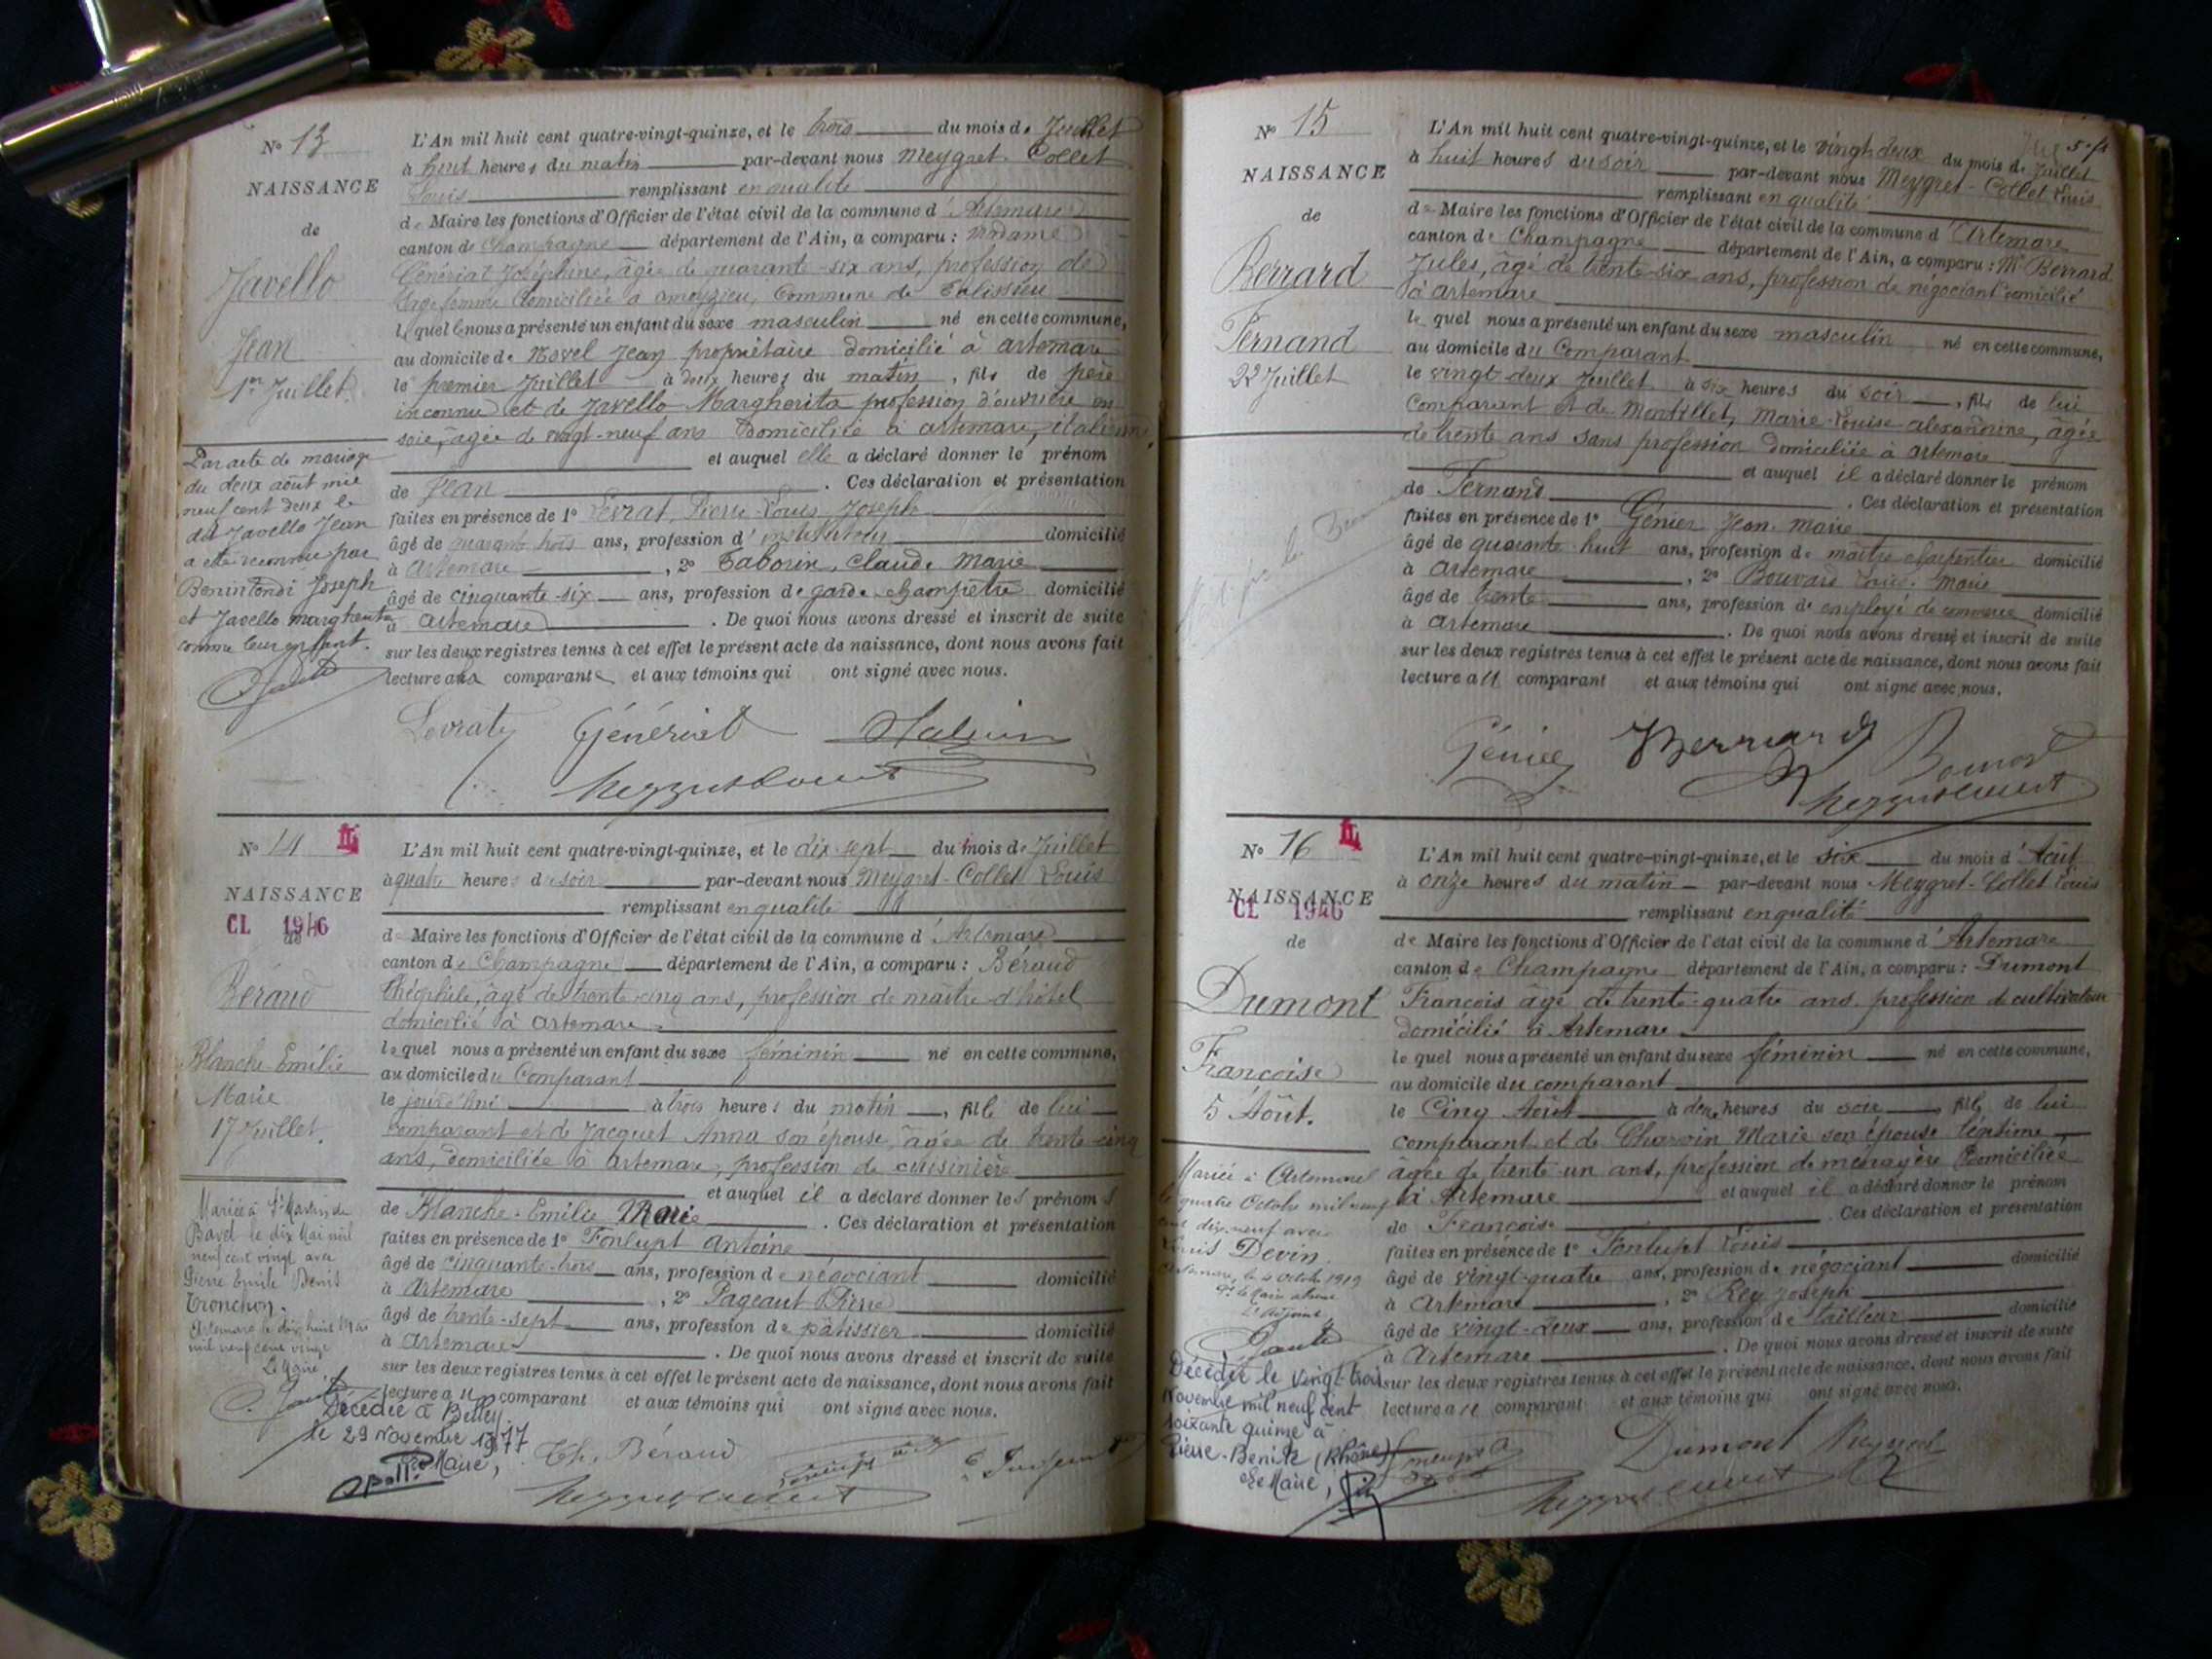 N° 13
NAISSANCE
de
Javello
Jean
1er Juillet.
Par acte de mariage
du deux août mil
neuf cent deux le
dit Javello Jean
a été reconnu par
Benintendi Joseph
et Javello margherita
comme leur enfant.
L'An mil huit cent quatre-vingt-quinze, et le trois du mois de Juillet
à huit heures du matin par-devant nous Meygret-Collet
Louis remplissant en qualité
de Maire les fonctions d'Officier de l'état civil de la commune d'Artemare
canton de Champagne département de l'Ain, a comparu : Madame
Génériat Joséphine, âgée de quarante-six ans, profession de
sage femme domiciliée à ameyzieu, Commune de Talissieu
lequel nous a présenté un enfant du sexe masculin né en cette commune,
au domicile de Novel Jean propriétaire domicilié à artemare
le premier Juillet à deux heures du matin, fils de père
inconnu et de Javello Margherita profession d'ouvrière en
soie, âgée de vingt-neuf ans domiciliée à artemare, italienne
et auquel elle a déclaré donner le prénom
de Jean. Ces déclaration et présentation
faites en présence de 1° Levrat, Pierre-Louis Joseph
âgé de quarante trois ans, profession d'instituteur domicilié
à Artemare, 2° Taborin, Claude Marie
âgé de cinquante-six ans, profession de garde champêtre domicilié
à Artemare. De quoi nous avons dressé et inscrit de suite
sur les deux registres tenus à cet effet le présent acte de naissance, dont nous avons fait
lecture à la comparante et aux témoins qui ont signé avec nous.
Levrat Génériat
N° 14
NAISSANCE
CL 1946
de
Béraud
Blanche-Emilie
Marie
17 Juillet.
Mariée à St Martin de
Bavel le dix Mai mil
neuf cent vingt avec
Pierre Emile Denis
Tronchon.
Artemare le dix huit Mai
mil neuf cent vingt
Le Maire
Décédée à Belley
le 29 Novembre 1977
Le Maire,
L'An mil huit cent quatre-vingt-quinze, et le dix-sept du mois de Juillet
à quatre heures du soir par-devant nous Meygret-Collet Louis
remplissant en qualité
de Maire les fonctions d'Officier de l'état civil de la commune d'Artemare
canton de Champagne département de l'Ain, a comparu : Béraud
Théophile, âgé de trente-cinq ans, profession de maître-d'hôtel
domicilié à artemare
lequel nous a présenté un enfant du sexe féminin né en cette commune,
au domicile du Comparant
le jourd'hui à trois heures du matin, fille de lui
comparant et de Jacquet Anna son épouse, âgée de trente-cinq
ans, domiciliée à artemare, profession de cuisinière
et auquel il a déclaré donner les prénoms
de Blanche-Emilie Marie. Ces déclaration et présentation
faites en présence de 1° Fonlupt Antoine
âgé de cinquante-trois ans, profession de négociant domicilié
à Artemare, 2° Pageaut Pierre
âgé de trente-sept ans, profession de pâtissier domicilié
à Artemare. De quoi nous avons dressé et inscrit de suite
sur les deux registres tenus à cet effet le présent acte de naissance, dont nous avons fait
lecture au comparant et aux témoins qui ont signé avec nous.
Th. Béraud
N° 15
NAISSANCE
de
Berrard
Fernand
22 Juillet
L'An mil huit cent quatre-vingt-quinze, et le vingt-deux du mois de Juillet
à huit heures du soir par-devant nous Meygret-Collet Louis
remplissant en qualité
de Maire les fonctions d'Officier de l'état civil de la commune d'Artemare
canton de Champagne département de l'Ain, a comparu : Mr Berrard
Jules, âgé de trente-six ans, profession de négociant domicilié
à artemare
lequel nous a présenté un enfant du sexe masculin né en cette commune,
au domicile du Comparant
le vingt-deux Juillet à six heures du soir, fils de lui
Comparant et de Montillet, Marie-Louise alexandrine, âgée
de trente ans sans profession domiciliée à Artemare
et auquel il a déclaré donner le prénom
de Fernand. Ces déclaration et présentation
faites en présence de 1° Génier Jean-Marie
âgé de quarante-huit ans, profession de maître charpentier domicilié
à Artemare, 2° Bouvard Louis-Marie
âgé de trente ans, profession de employé de commerce domicilié
à Artemare. De quoi nous avons dressé et inscrit de suite
sur les deux registres tenus à cet effet le présent acte de naissance, dont nous avons fait
lecture au comparant et aux témoins qui ont signé avec nous.
Génier Berrard
N° 16
NAISSANCE
CL 1946
de
Dumont
Francoise
5 Août.
Mariée à Artemare
le quatre Octobre mil neuf
cent dix-neuf avec
Louis Devin
Artemare, le 4 Octobre 1919
L'Adjoint
Décédée le vingt-trois
Novembre mil neuf cent
soixante quinze à
Pierre-Bénite (Rhône)
Le Maire,
L'An mil huit cent quatre-vingt-quinze, et le six du mois d'Août
à onze heures du matin par-devant nous Meygret-Collet Louis
remplissant en qualité
de Maire les fonctions d'Officier de l'état civil de la commune d'Artemare
canton de Champagne département de l'Ain, a comparu : Dumont
François âgé de trente-quatre ans, profession de cultivateur
domicilié à Artemare
lequel nous a présenté un enfant du sexe féminin né en cette commune,
au domicile du comparant
le Cinq Août à dix heures du soir, fille de lui
comparant et de Charvin Marie son épouse légitime
âgée de trente un ans, profession de ménagère domiciliée
à Artemare et auquel il a déclaré donner le prénom
de Francoise. Ces déclaration et présentation
faites en présence de 1° Fonlupt Louis
âgé de vingt-quatre ans, profession de négociant domicilié
à Artemare, 2° Rey Joseph
âgé de vingt-deux ans, profession de tailleur domicilié
à Artemare. De quoi nous avons dressé et inscrit de suite
sur les deux registres tenus à cet effet le présent acte de naissance, dont nous avons fait
lecture au comparant et aux témoins qui ont signé avec nous.
Dumont